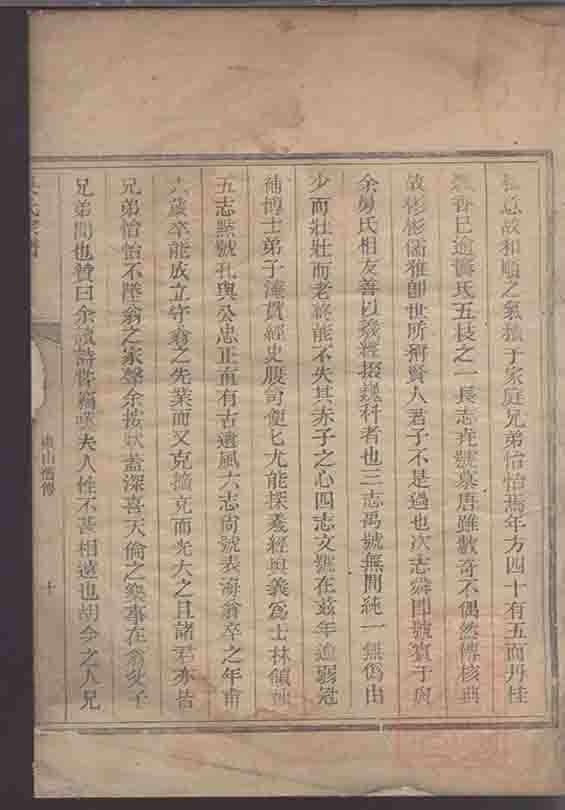 意故和順之氣積于家庭兄弟怡怡焉年方四十有五而丹桂
香已逾竇氏五枝之一長志堯號慕唐雖數奇不偶然傳核典
故彬彬儒雅即世所稱賢人君子不是過也次志舜即號賓于與
余舅氏相友善以羲經掇巍科者也三志禹號無間純一無僞由
少而壯壯而老終能不失其赤子之心四志文號在兹年逾弱冠
補博士弟子淹貫經史殷旬便匕尤能探羲經奥義爲士林領袖
五志默號孔與公忠正直有古遺風六志尚號表海翁卒之年甫
六歲卒能成立守翁之先業而又克擴充而光大之且諸君亦皆
兄弟怡怡不墜翁之家聲余按狀蓋深喜天倫之樂事在翁父子
兄弟間也贊曰余讀詩獨夫人性不甚相遠也胡今之人兄
氏宗譜
山翁傳
十